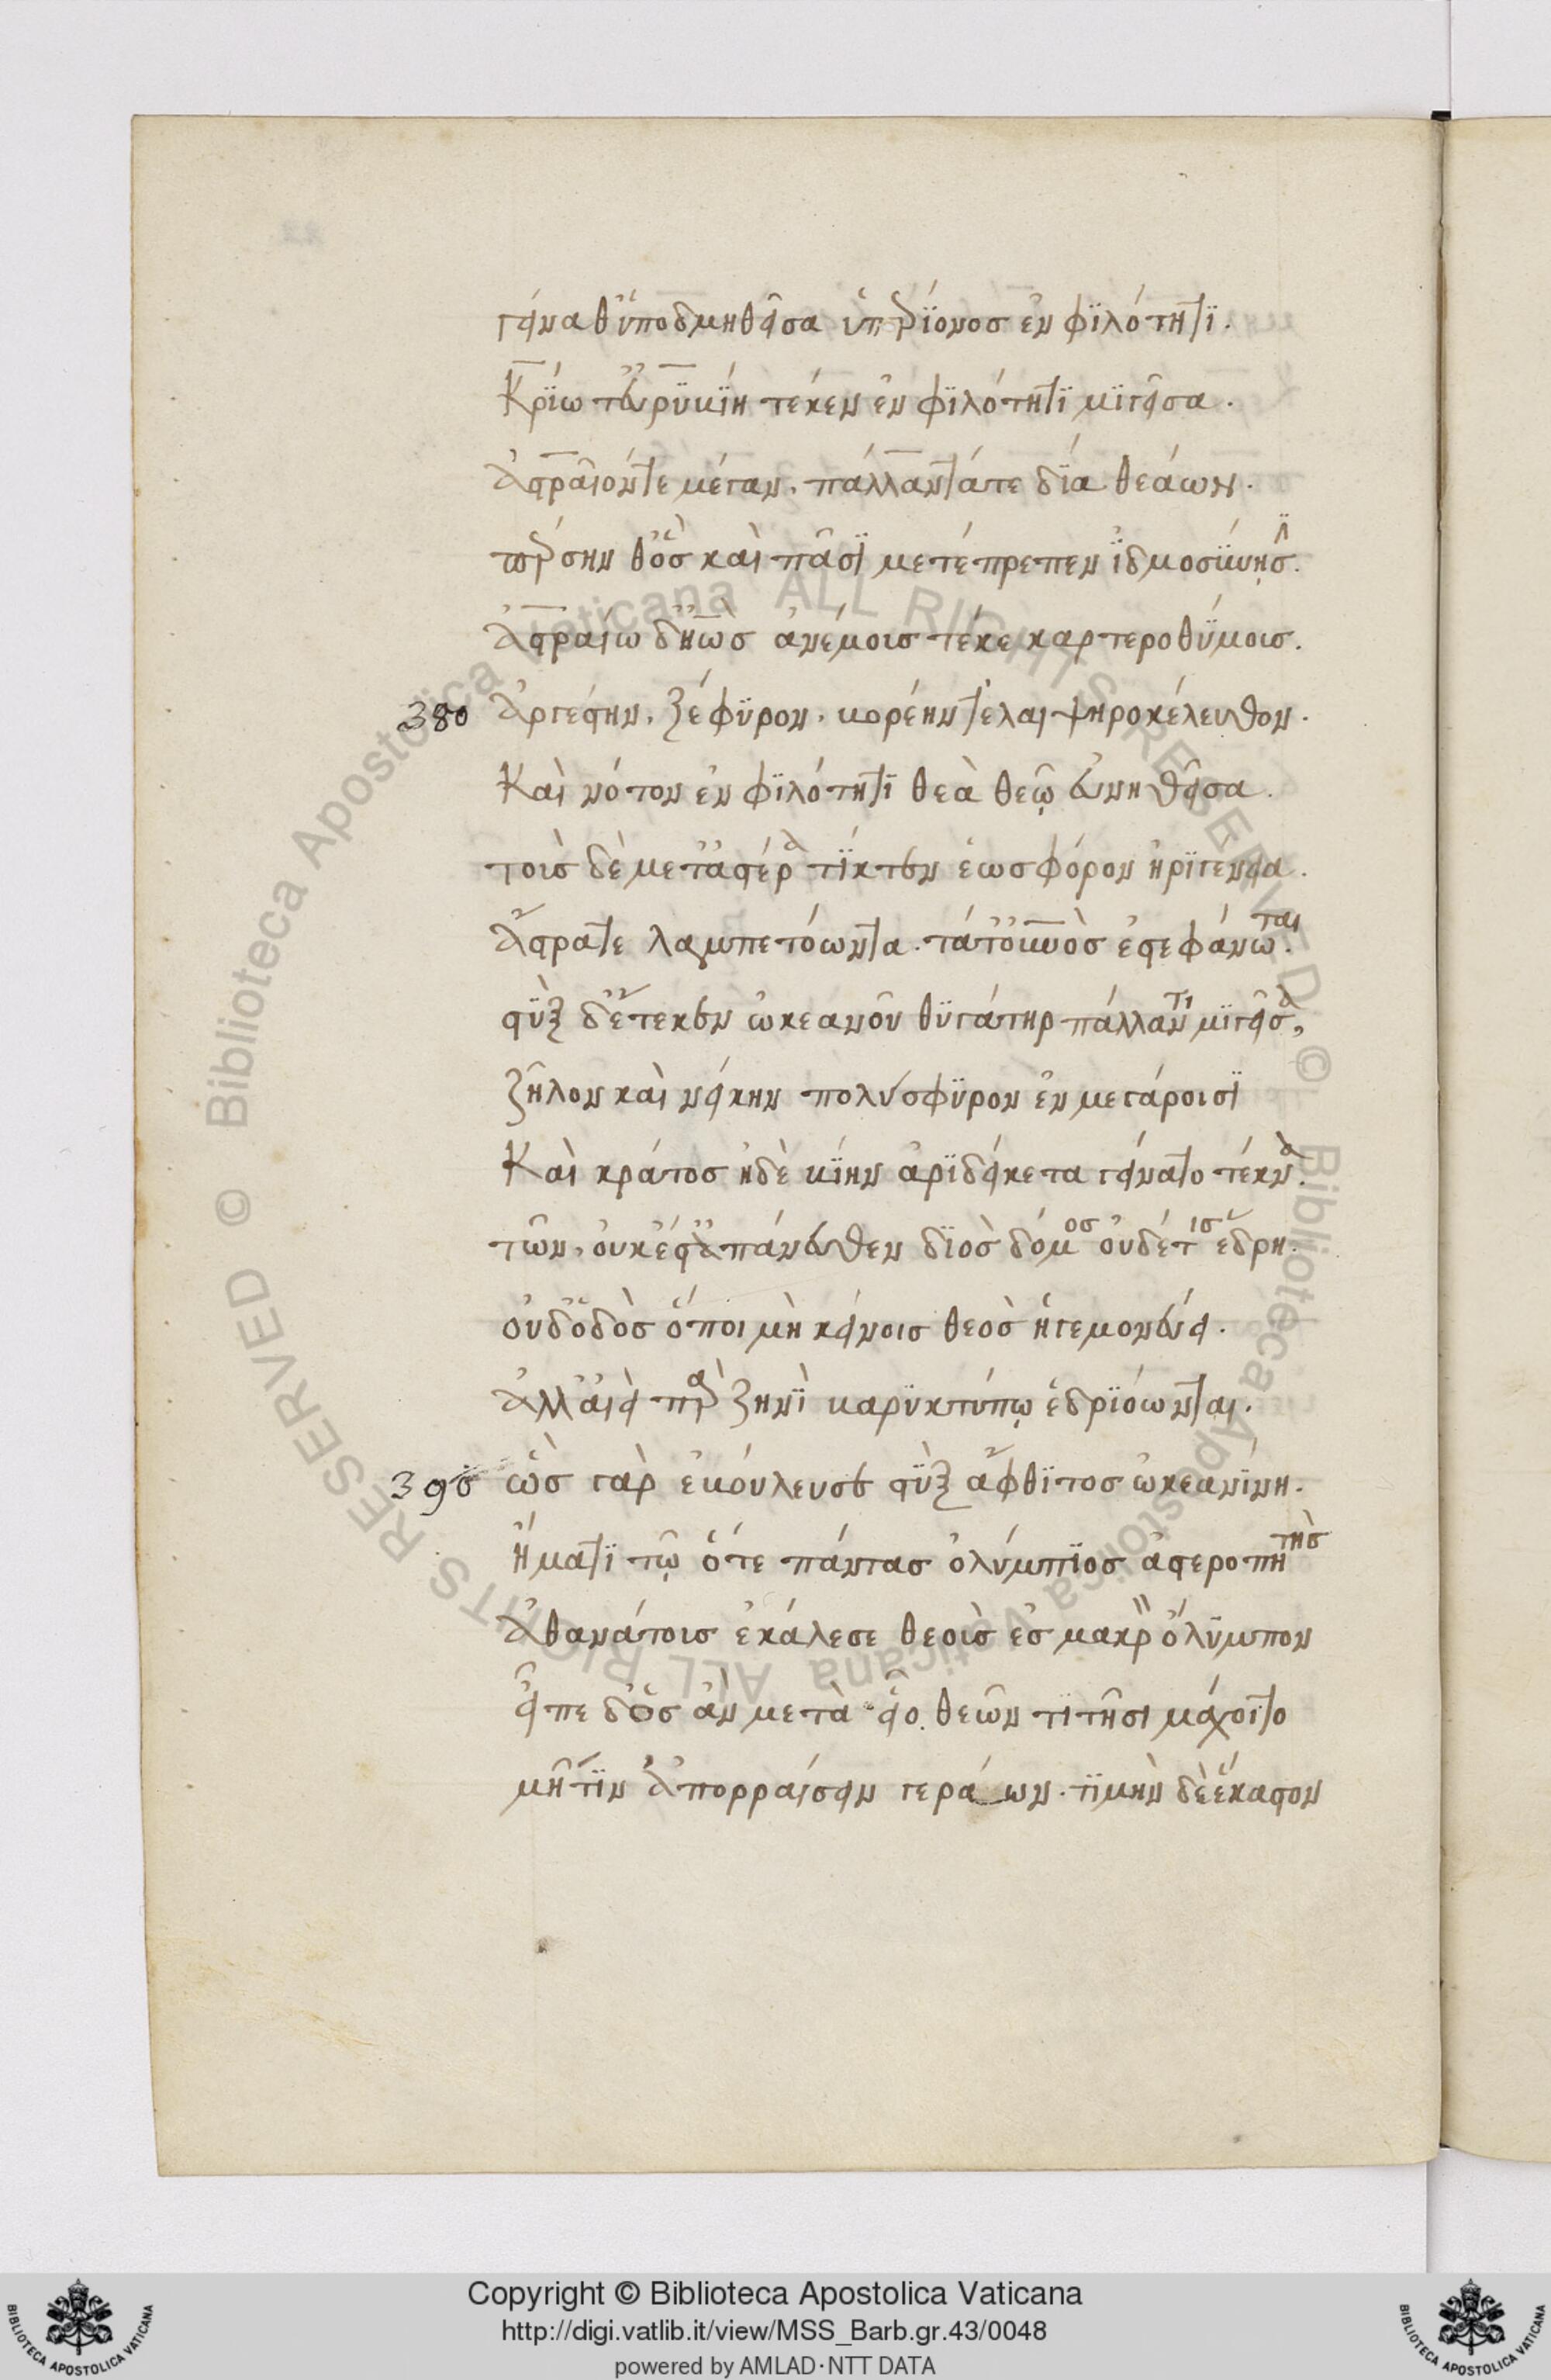 γείναθ' ὑποδμηθεῖσα ὑπερίονος ἐν φιλότητι.
Κρίω τ' εὐρυβίη τέκεν ἐν φιλότητι μιγεῖσα.
Ἀστραῖόν τε μέγαν. πάλλαντά τε δῖα θεάων.
πέρσην θ' ὃς καὶ πᾶσι μετέπρεπεν ἰδμοσύνησιν.
Ἀστραίω δ' ἠὼς ἀνέμοις τέκε καρτεροθύμοις.
380 Ἀργέστην. ζέφυρον. βορέην τ' ἐλαιψηροκέλευθον.
Καὶ νότον ἐν φιλότητι θεὰ θεῷ εὐνηθεῖσα.
τοὶς δὲ μετ' ἀστέρα τίκτεν ἑωσφόρον ἠριγένεια.
Ἄστρα τε λαμπετόωντα. τά τ' οὐρανὸς ἐστεφάνωται.
στὺξ δ' ἔτεκεν ὠκεανοῦ θυγάτηρ πάλλαντι μιγεῖσα,
ζῆλον καὶ νείκην πολύσφυρον ἐν μεγάροισι
Καὶ κράτος ἠδὲ βίην ἀριδείκετα γείνατο τέκνα.
τῶν. οὐκ ἔστ' ἀπάνευθεν διὸς δόμος οὐδέ τις ἕδρη.
οὐδ' ὁδὸς ὅποι μὴ κείνοις θεὸς ἡγεμονεύει.
Ἀλλ' αἰεὶ παρ ζηνὶ βαρυκτύπῳ ἑδριόωνται.
390 ὣς γὰρ ἐβούλευσε στὺξ ἄφθιτος ὠκεανίνη.
Ἤματι τῷ ὅτε πάντας ὀλύμπιος ἀστεροπητὴς
Ἀθανάτοις ἐκάλεσε θεοὶς ἐς μακρὸν ὄλυμπον
εἶπε δ' ὃς ἂν μετὰ εἷο. θεῶν τιτῆσι μάχοιτο
μή τιν' Ἀπορραίσειν γεράων. τιμὴν δὲ ἕκαστον
Copyright © Biblioteca Apostolica Vaticana
http://digi.vatlib.it/view/MSS_Barb.gr.43/0048
powered by AMLAD·NTT DATA